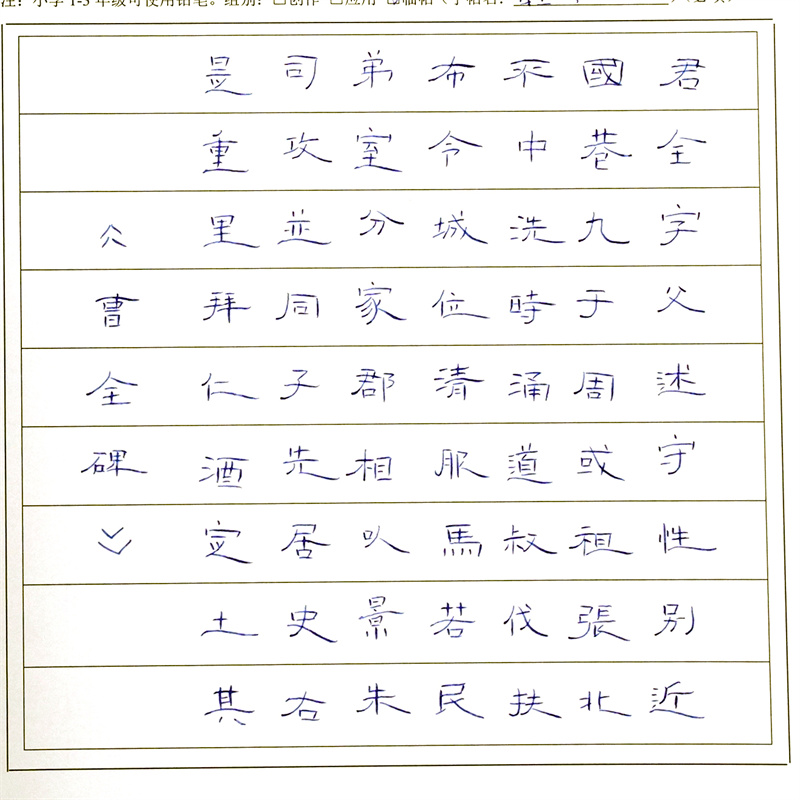 注：小学 1-3 年级可使用铅笔。组别：□创作 □应用 ☑临帖（字帖名：
君全字父述守性别近
國巷九于周或祖張北
不中洗時涌道叔伐扶
布令城位清服馬若民
弟室分家郡相㕥景朱
司攻並同子先居史右
是重里拜仁酒定土其
《曹全碑》